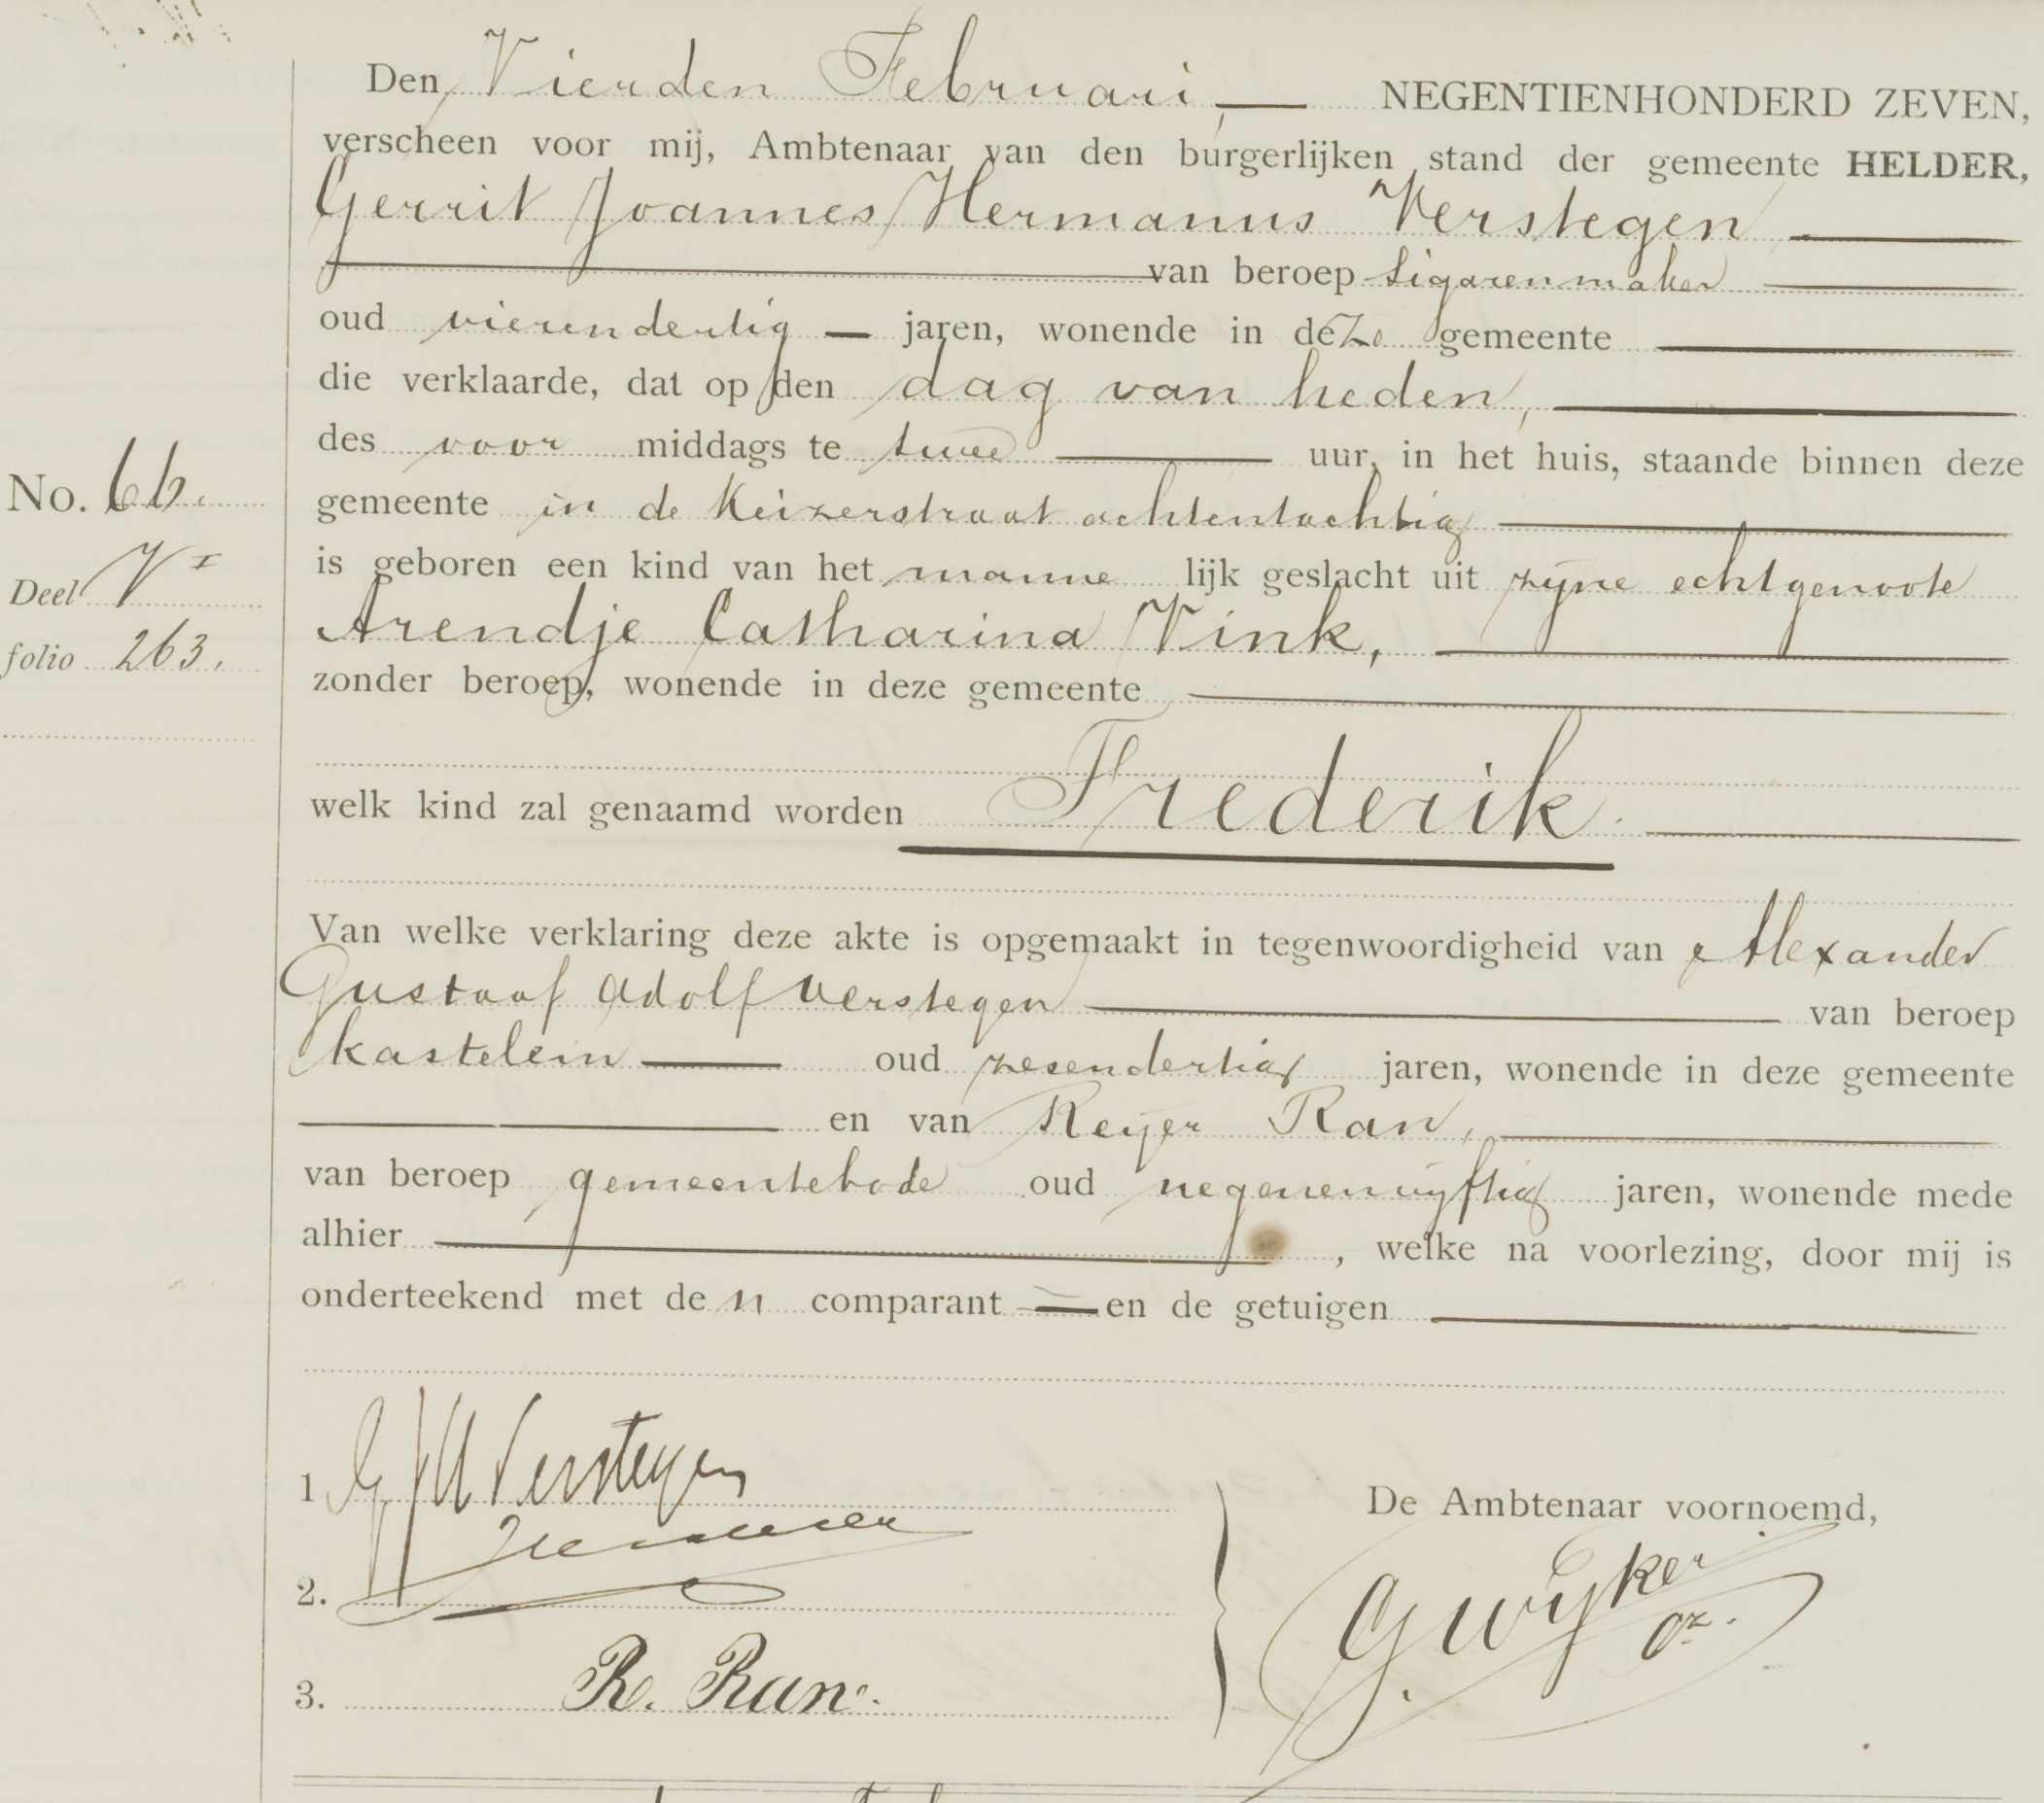 Den Vierden Februari, NEGENTIENHONDERD ZEVEN,
verscheen voor mij, Ambtenaar van den burgerlijken stand der gemeente HELDER,
Gerrit Joannes Hermanus Verstegen
van beroep Sigarenmaker
oud vierendertig jaren, wonende in deze gemeente
die verklaarde, dat op den dag van heden,
des voor middags te twee uur, in het huis, staande binnen deze
No. 66.
gemeente in de Keizerstraat achtentachtig
Deel VI
is geboren een kind van het manne lijk geslacht uit zijne echtgenoote
folio 263.
Arendje Catharina Vink,
zonder beroep, wonende in deze gemeente
welk kind zal genaamd worden Frederik.
Van welke verklaring deze akte is opgemaakt in tegenwoordigheid van Alexander
Gustaaf Adolf Verstegen van beroep
kastelein oud zesendertig jaren, wonende in deze gemeente
en van Reijer Ran,
van beroep gemeentebode oud negenenvijftig jaren, wonende mede
alhier , welke na voorlezing, door mij is
onderteekend met de n comparant en de getuigen
1 GJH Verstegen
De Ambtenaar voornoemd,
2.
G Wijker
Oz.
3. R. Ran.